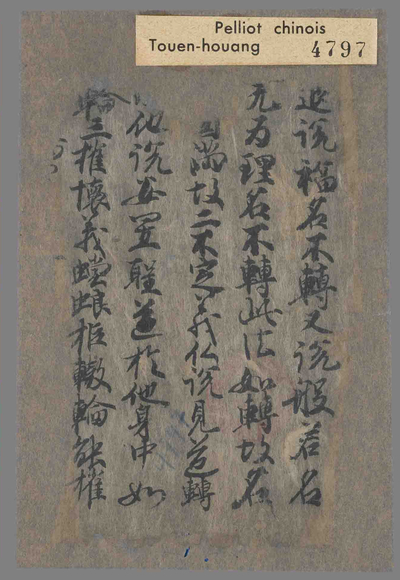 Pelliot chinois
Touen-houang 4797
迹説福名不轉又説般若名
无為理名不轉此法如轉故名
滿故二不定義仏説見道轉
他説安置聖道於他身中如
輪三摧壞義螳蜋拒轍輪能摧